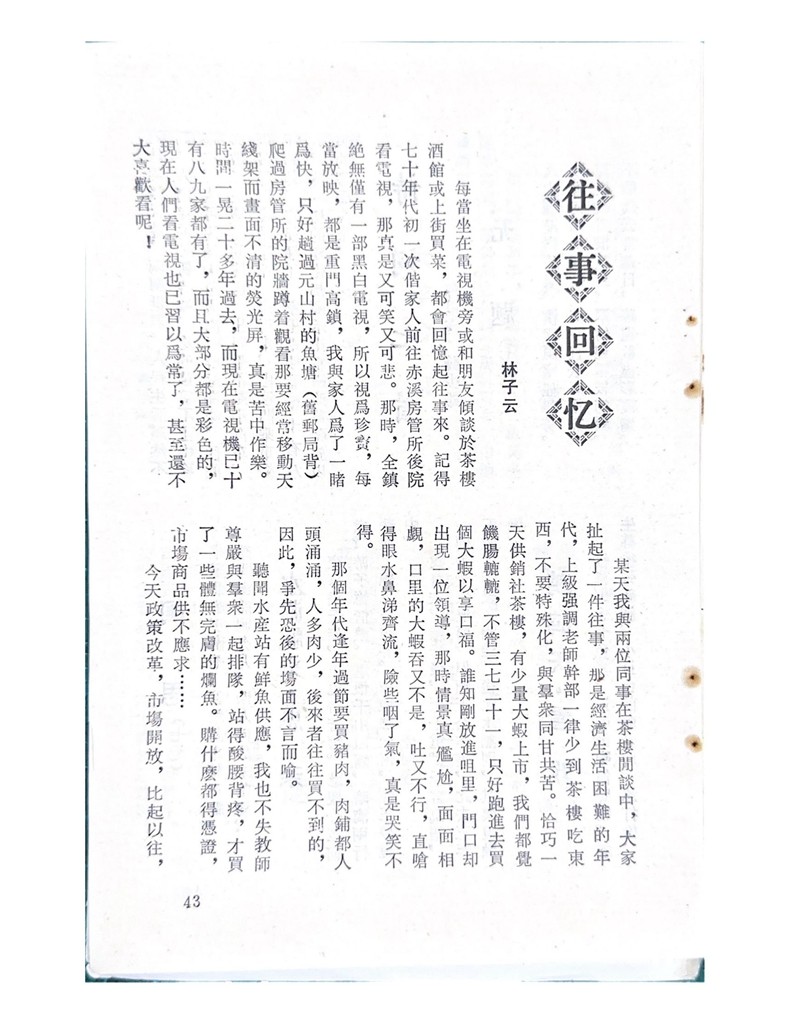 往事回忆
林子云
每當坐在電視機旁或和朋友傾談於茶樓
酒館或上街買菜，都會回憶起往事來。記得
七十年代初一次偕家人前往赤溪房管所後院
看電視，那真是又可笑又可悲。那時，全鎮
絶無僅有一部黑白電視，所以視爲珍寶，每
當放映，都是重門高鎖，我與家人爲了一睹
爲快，只好趟過元山村的魚塘（舊郵局背）
爬過房管所的院牆蹲着觀看那要經常移動天
綫架而畫面不清的熒光屏，真是苦中作樂。
時間一晃二十多年過去，而現在電視機已十
有八九家都有了，而且大部分都是彩色的，
現在人們看電視也已習以爲常了，甚至還不
大喜歡看呢！
某天我與兩位同事在茶樓閒談中，大家
扯起了一件往事，那是經濟生活困難的年
代，上級强調老師幹部一律少到茶樓吃東
西，不要特殊化，與羣衆同甘共苦。恰巧一
天供銷社茶樓，有少量大蝦上市，我們都覺
饑腸轆轆，不管三七二十一，只好跑進去買
個大蝦以享口福。誰知剛放進咀里，門口却
出現一位領導，那時情景真尷尬，面面相
覷，口里的大蝦吞又不是，吐又不行，直嗆
得眼水鼻涕齊流，險些咽了氣，真是哭笑不
得。
那個年代逢年過節要買豬肉，肉鋪都人
頭涌涌，人多肉少，後來者往往買不到的，
因此，爭先恐後的塲面不言而喻。
聽聞水産站有鮮魚供應，我也不失教師
尊嚴與羣衆一起排隊，站得酸腰背疼，才買
了一些體無完膚的爛魚。購什麽都得憑證，
市塲商品供不應求……
今天政策改革，市塲開放，比起以往，
43